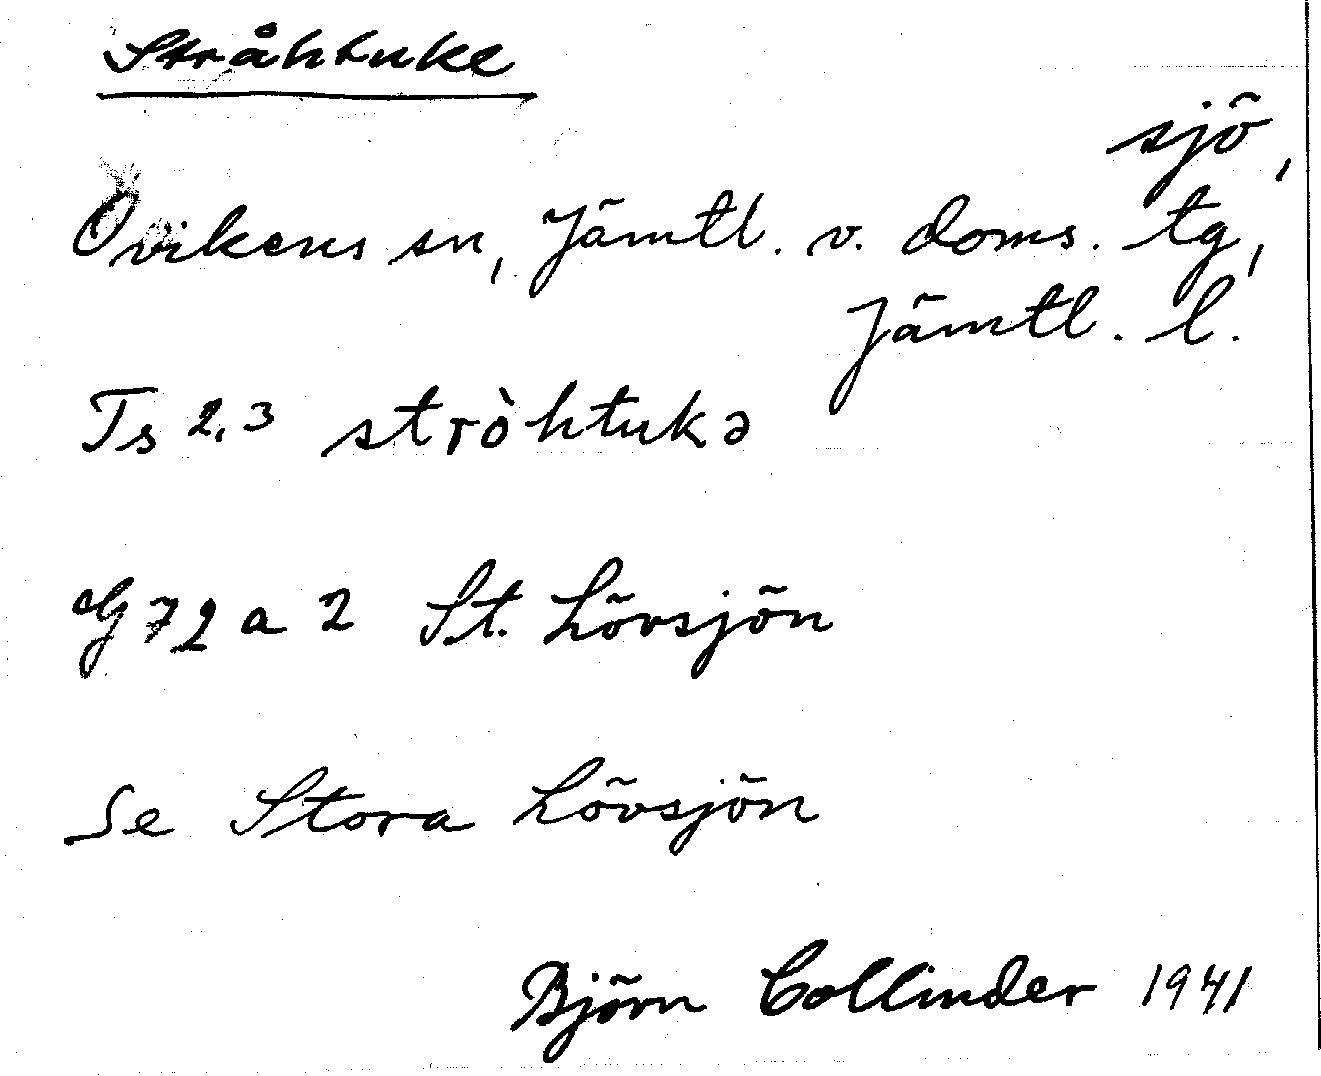 Stråhtuke
sjö,
Ovikens sn, Jämtl. v. doms. tg,
Jämtl. l.
Ts 2,3 stròhtukə
G 72 a 2 St. Lövsjön
Se Stora Lövsjön
Björn Collinder 1941